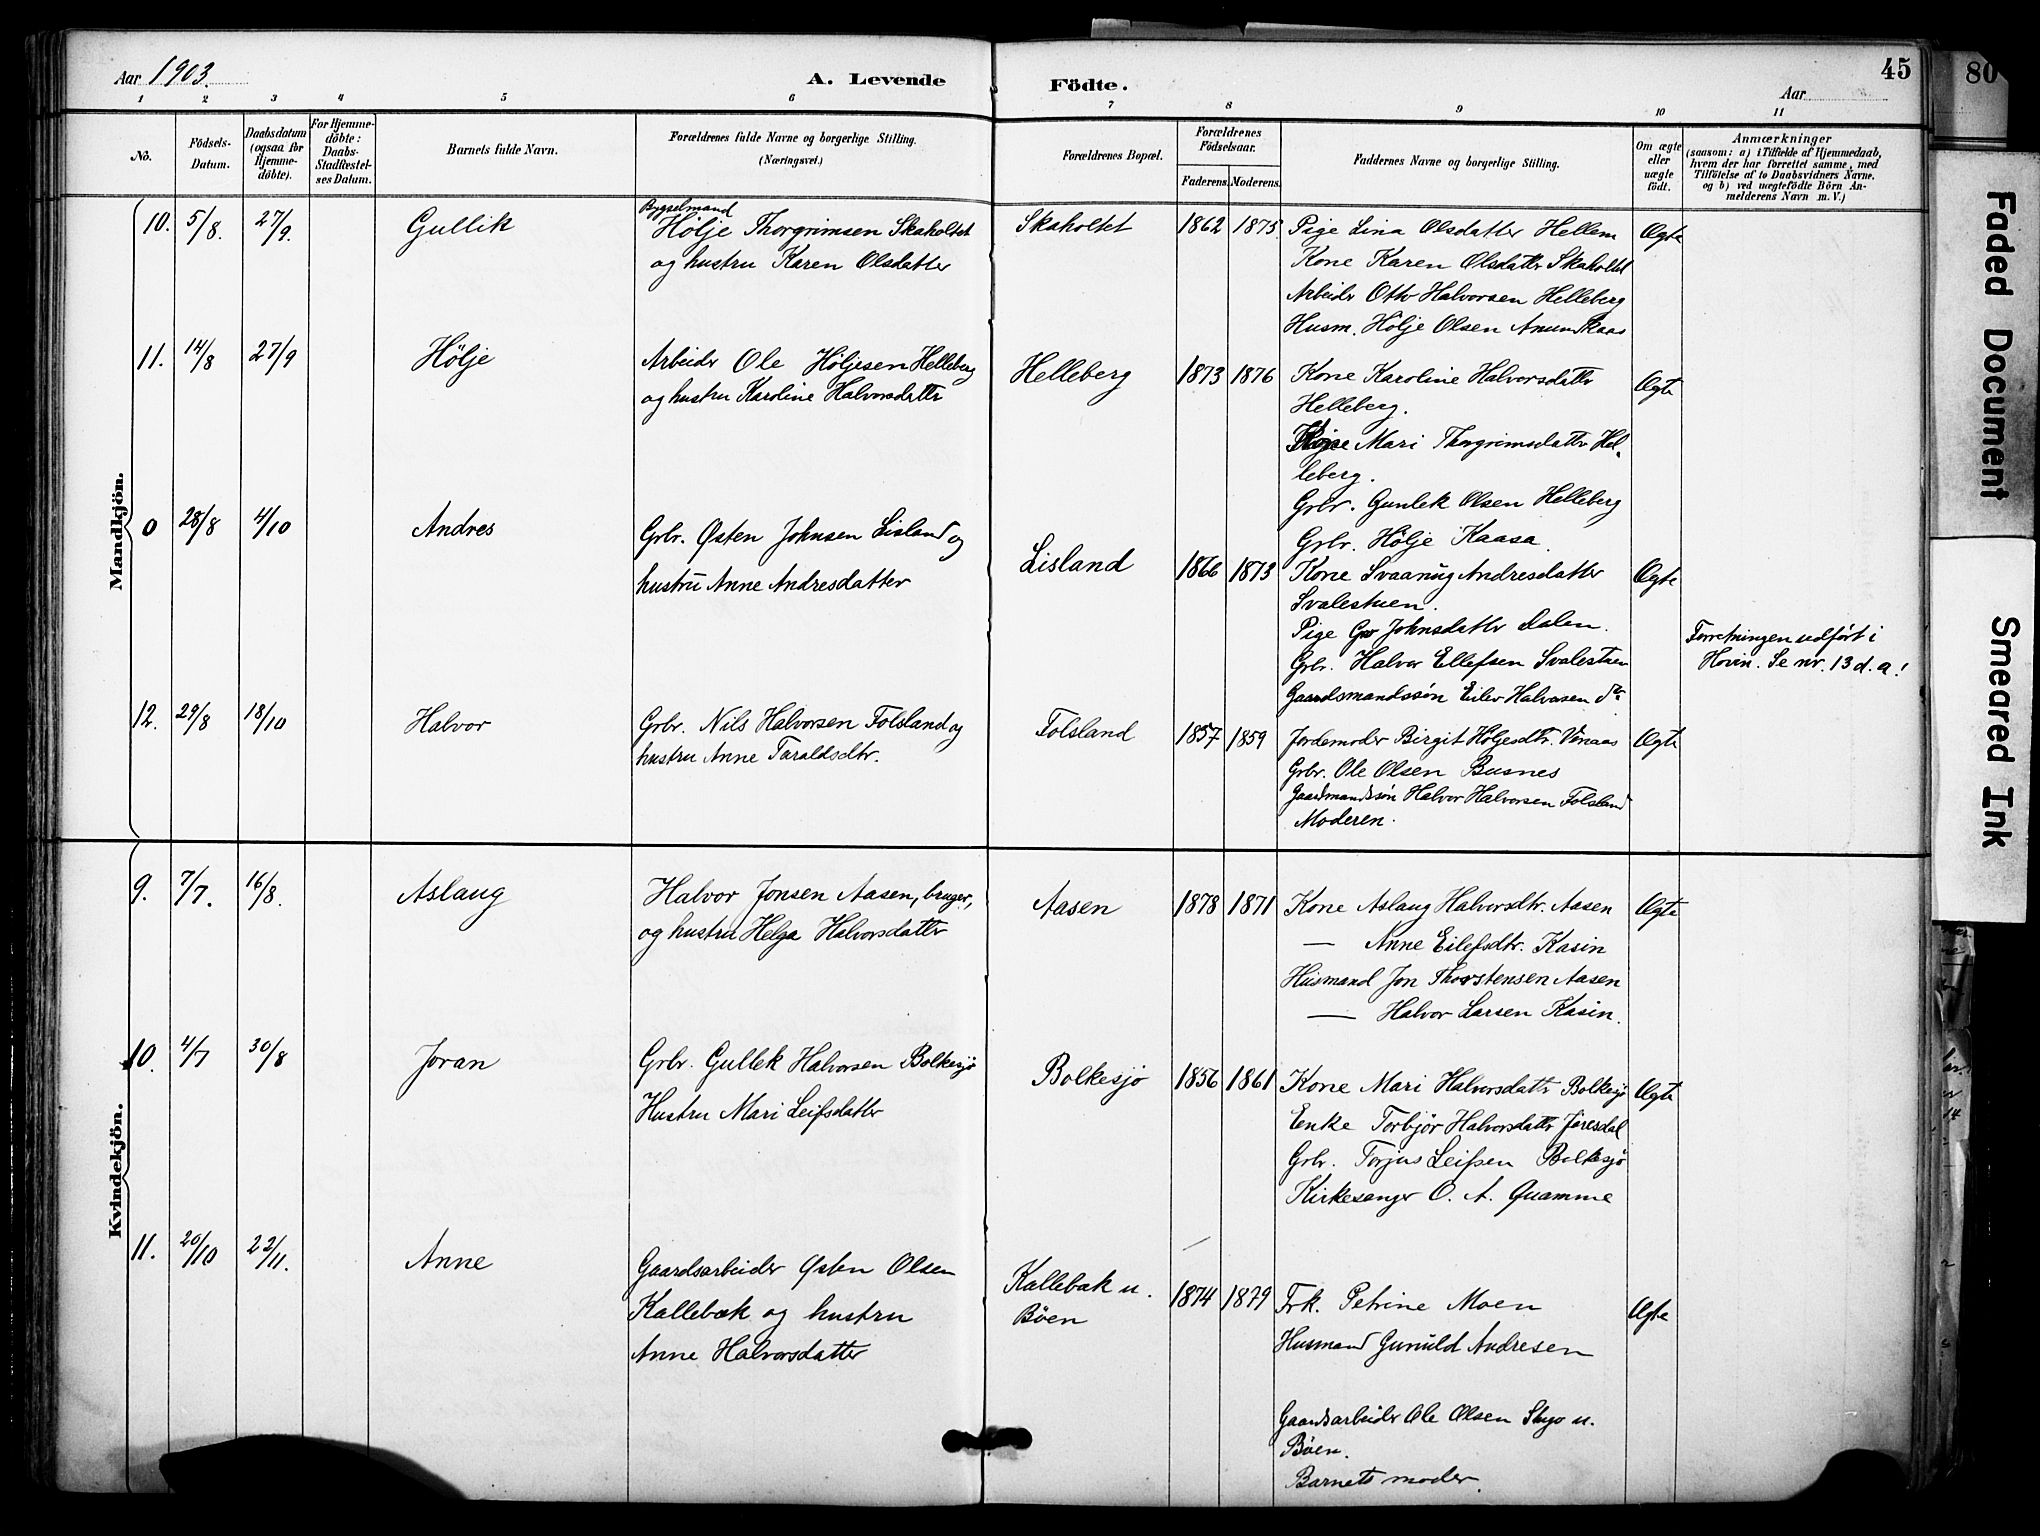 Aar 1903.
A. Levende
Födte.
45
80
Aar
1 2 3 4 5 6 7 8 9 10 11
No.
Födsels-Datum.
Daabsdatum (ogsaa for Hjemme-döbte).
For Hjemme-döbte: Daabs-Stadfæstel-ses Datum.
Barnets fulde Navn.
Forældrenes fulde Navne og borgerlige Stilling.
(Næringsvei.)
Forældrenes Bopæl.
Forældrenes Födselsaar.
Faderens. Moderens.
Faddernes Navne og borgerlige Stilling.
Om ægte eller uægte födt.
Anmærkninger
(saasom: a) i Tilfælde af Hjemmedaab,
hvem der har forrettet samme, med
Tilföielse af to Daabsvidners Navne.
og b) ved uægtefödte Börn An-
melderens Navn m. V.)
Mandkjön.
10. 5/8. 27/9. Gullik
Bygselmand
Hølje Thorgrimsen Skaholtet
og hustru Karen Olsdatter
Skaholtet 1862 1875.
Pige Lina Olsdatter Hellem
Kone Karen Olsdattr Skaholtet
Arbeidr Otto Halvorsen Helleberg
Husm. Hølje Olsen Amundkaas
Ægte
11. 14/8 27/9 Hölje
Arbeidr Ole Höljesen Helleberg
og hustru Karoline Halvorsdattr
Helleberg 1873 1876
Kone Karoline Halvorsdattr
Helleberg.
Mari Thorgrimsdattr Hel-
leberg.
Grbr. Gunlek Olsen Helleberg
Grbr. Hölje Kaasa.
Ægte
0 28/8 4/10 Andres
Grbr. Østen Johnsen Lisland og
hustru Anne Andresdatter
Lisland 1866 1873
Kone Svaanug Andresdatter
Svalestuen.
Pige Gro Johnsdattr Dalen.
Grbr. Halvor Ellefsen Svalestuen
Gaardsmandssön Eilev Halvorsen do
Ægte
Forretningen udfört i
Hovin. Se nr. 13 d. a!
12. 29/8 18/10 Halvor
Grbr. Nils Halvorsen Folsland og
hustru Anne Taraldsdtr.
Folsland 1857 1859
Jordemoder Birgit Höljesdtr. Vinaas
Grbr. Ole Olsen Busnes
Gaardmandssön Halvor Halvorsen Folsland
Moderen.
Ægte
Kvindekjön.
9. 7/7. 16/8. Aslaug
Halvor Jonsen Aasen, bruger,
og hustru Helga Halvorsdattr
Aasen 1878 1871
Kone Aslaug Halvorsdtr. Aasen
— Anne Eilefsdtr. Kasin
Husmand Jon Thorstensen Aasen
— Halvor Larsen Kasin.
Ægte
10. 4/7 30/8 Joran
Grbr. Gullek Halvorsen Bolkesjø
Hustru Mari Leifsdatter
Bolkesjö 1856 1861
Kone Mari Halvorsdattr Bolkesjö
Enke Torbjör Halvorsdattr Jøresdal
Grbr. Torjus Leifsen Bolkesjö
Kirkesanger O. A. Quamme
Ægte
11. 20/10 22/11. Anne
Gaardsarbeider Østen Olsen
Kallebæk og hustru
Anne Halvorsdatter
Kallebæk u.
Böen
1874 1879
Frk. Petrine Moen
Husmand Gunuld Andresen
Gaardsarbeider Ole Olsen u.
Böen.
Barnets moder.
Ægte
Faded Document
Smeared Ink